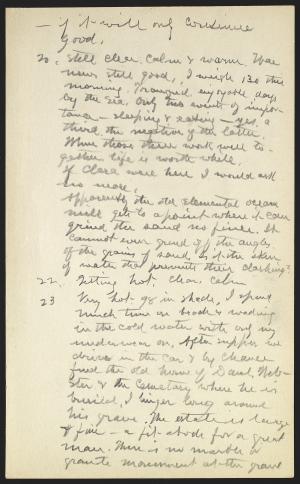 — if it will only continue
good.
20. Still clear, calm & warm. War
news still good, I weigh 130 this
morning. Tranquil enjoyable days
by the sea. Only two events of impor-
tance — sleeping & eating — yes, a
third, the negative of the latter.
When those three work well to-
gether life is worth while.
If Clara were here I would ask
no more.
Apparently the old elemental ocean
mill gets to a point where it can
grind the sand no finer. It
cannot even grind off the angles
of the grains of sand. Is it the skin
of water that prevents their clashing?
22. Getting hot, clear, calm
23 Very hot 98 in shade, I spend
much time on beach & wading
in the cold water with only my
underwear on. After supper we
drive in the car & by chance
find the old home of Danl. Web-
ster & the cemetary where he is
buried, I linger long around
his grave. The estate is large
& fine — a fit abode for a great
man. There is no marble or
granite monument at the grave